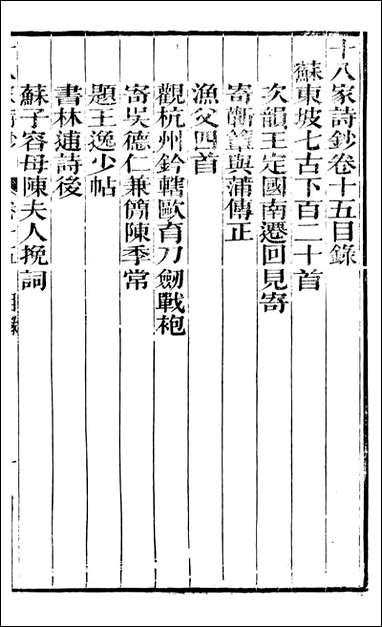 十八家詩鈔卷十五目錄
蘇東坡七古下百二十首
次韻王定國南遷回見寄
寄蘄簟與蒲傳正
漁父四首
觀杭州鈐轄歐育刀劒戰袍
寄吳德仁兼簡陳季常
題王逸少帖
書林逋詩後
蘇子容母陳夫人挽詞